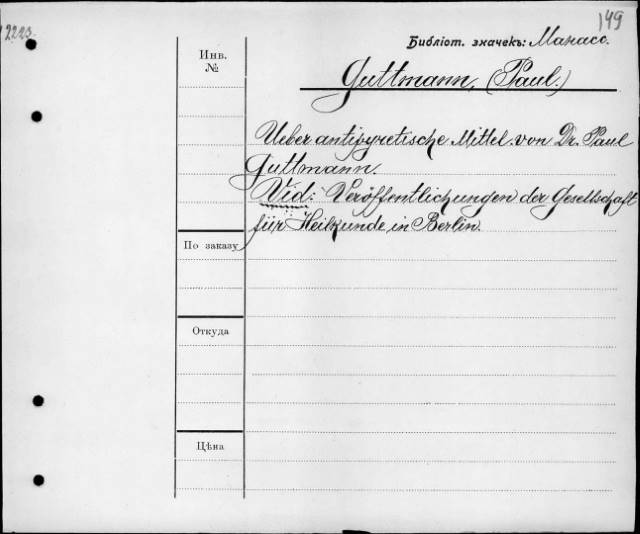 149
2223.
Библіот. значекъ: Манасс.
Инв.
№
Guttmann, (Paul.)
Ueber antipyretische Mittel. von Dr. Paul
Guttmann.
Vid: Veröffentlichungen der Gesellschaft
für Heilkunde in Berlin.
По заказу
Откуда
Цѣна